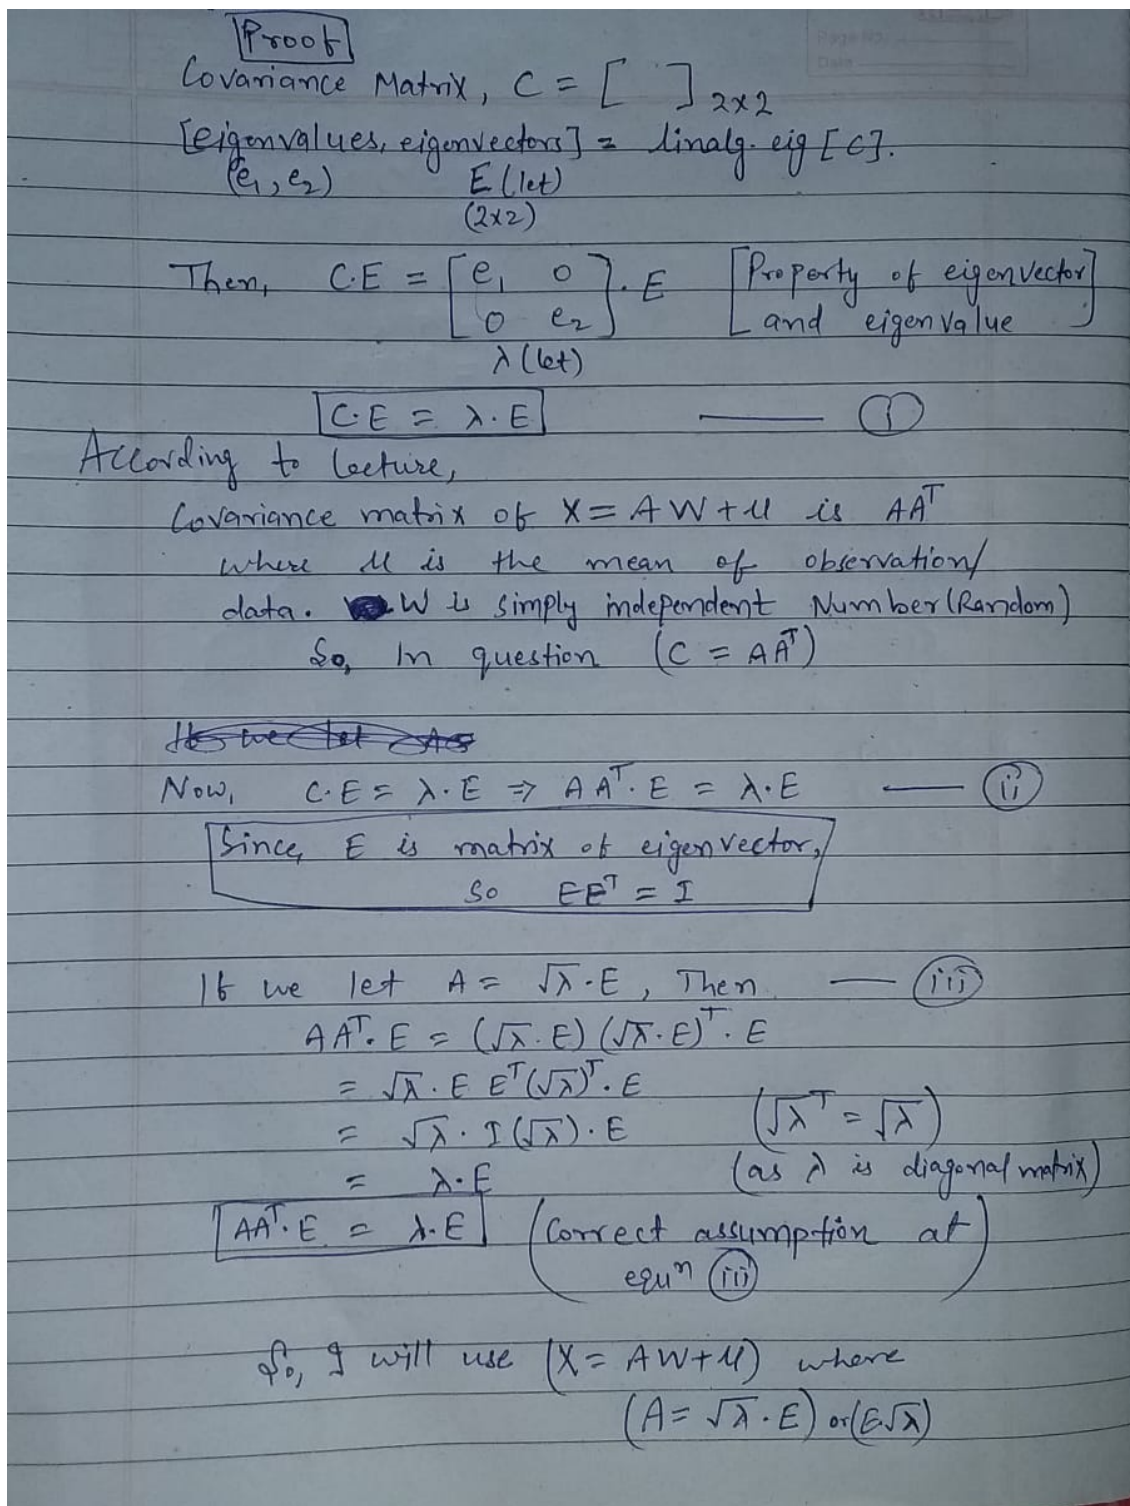 Page No.
Date
Proof
Covariance Matrix, C = [ ] 2x2
[eigenvalues, eigenvectors] = linalg.eig [C].
(e1, e2) E (let)
(2x2)
Then, C.E = [e1 0
0 e2] . E [Property of eigenvector
and eigenvalue]
λ (let)
C.E = λ.E —— (i)
According to lecture,
Covariance matrix of X = AW + μ is AA^T
where μ is the mean of observation/
data. W is simply independent Number (Random)
So, In question (C = AA^T)
If we let A =
Now, C.E = λ.E ⇒ AA^T.E = λ.E —— (ii)
Since, E is matrix of eigenvector,
so EE^T = I
If we let A = √λ.E, Then —— (iii)
AA^T.E = (√λ.E)(√λ.E)^T.E
= √λ.E E^T(√λ)^T.E
= √λ.I(√λ).E (√λ^T = √λ)
= λ.E (as λ is diagonal matrix)
AA^T.E = λ.E (Correct assumption at
equ^n (iii))
So, I will use (X = AW + μ) where
(A = √λ.E) or (E√λ)